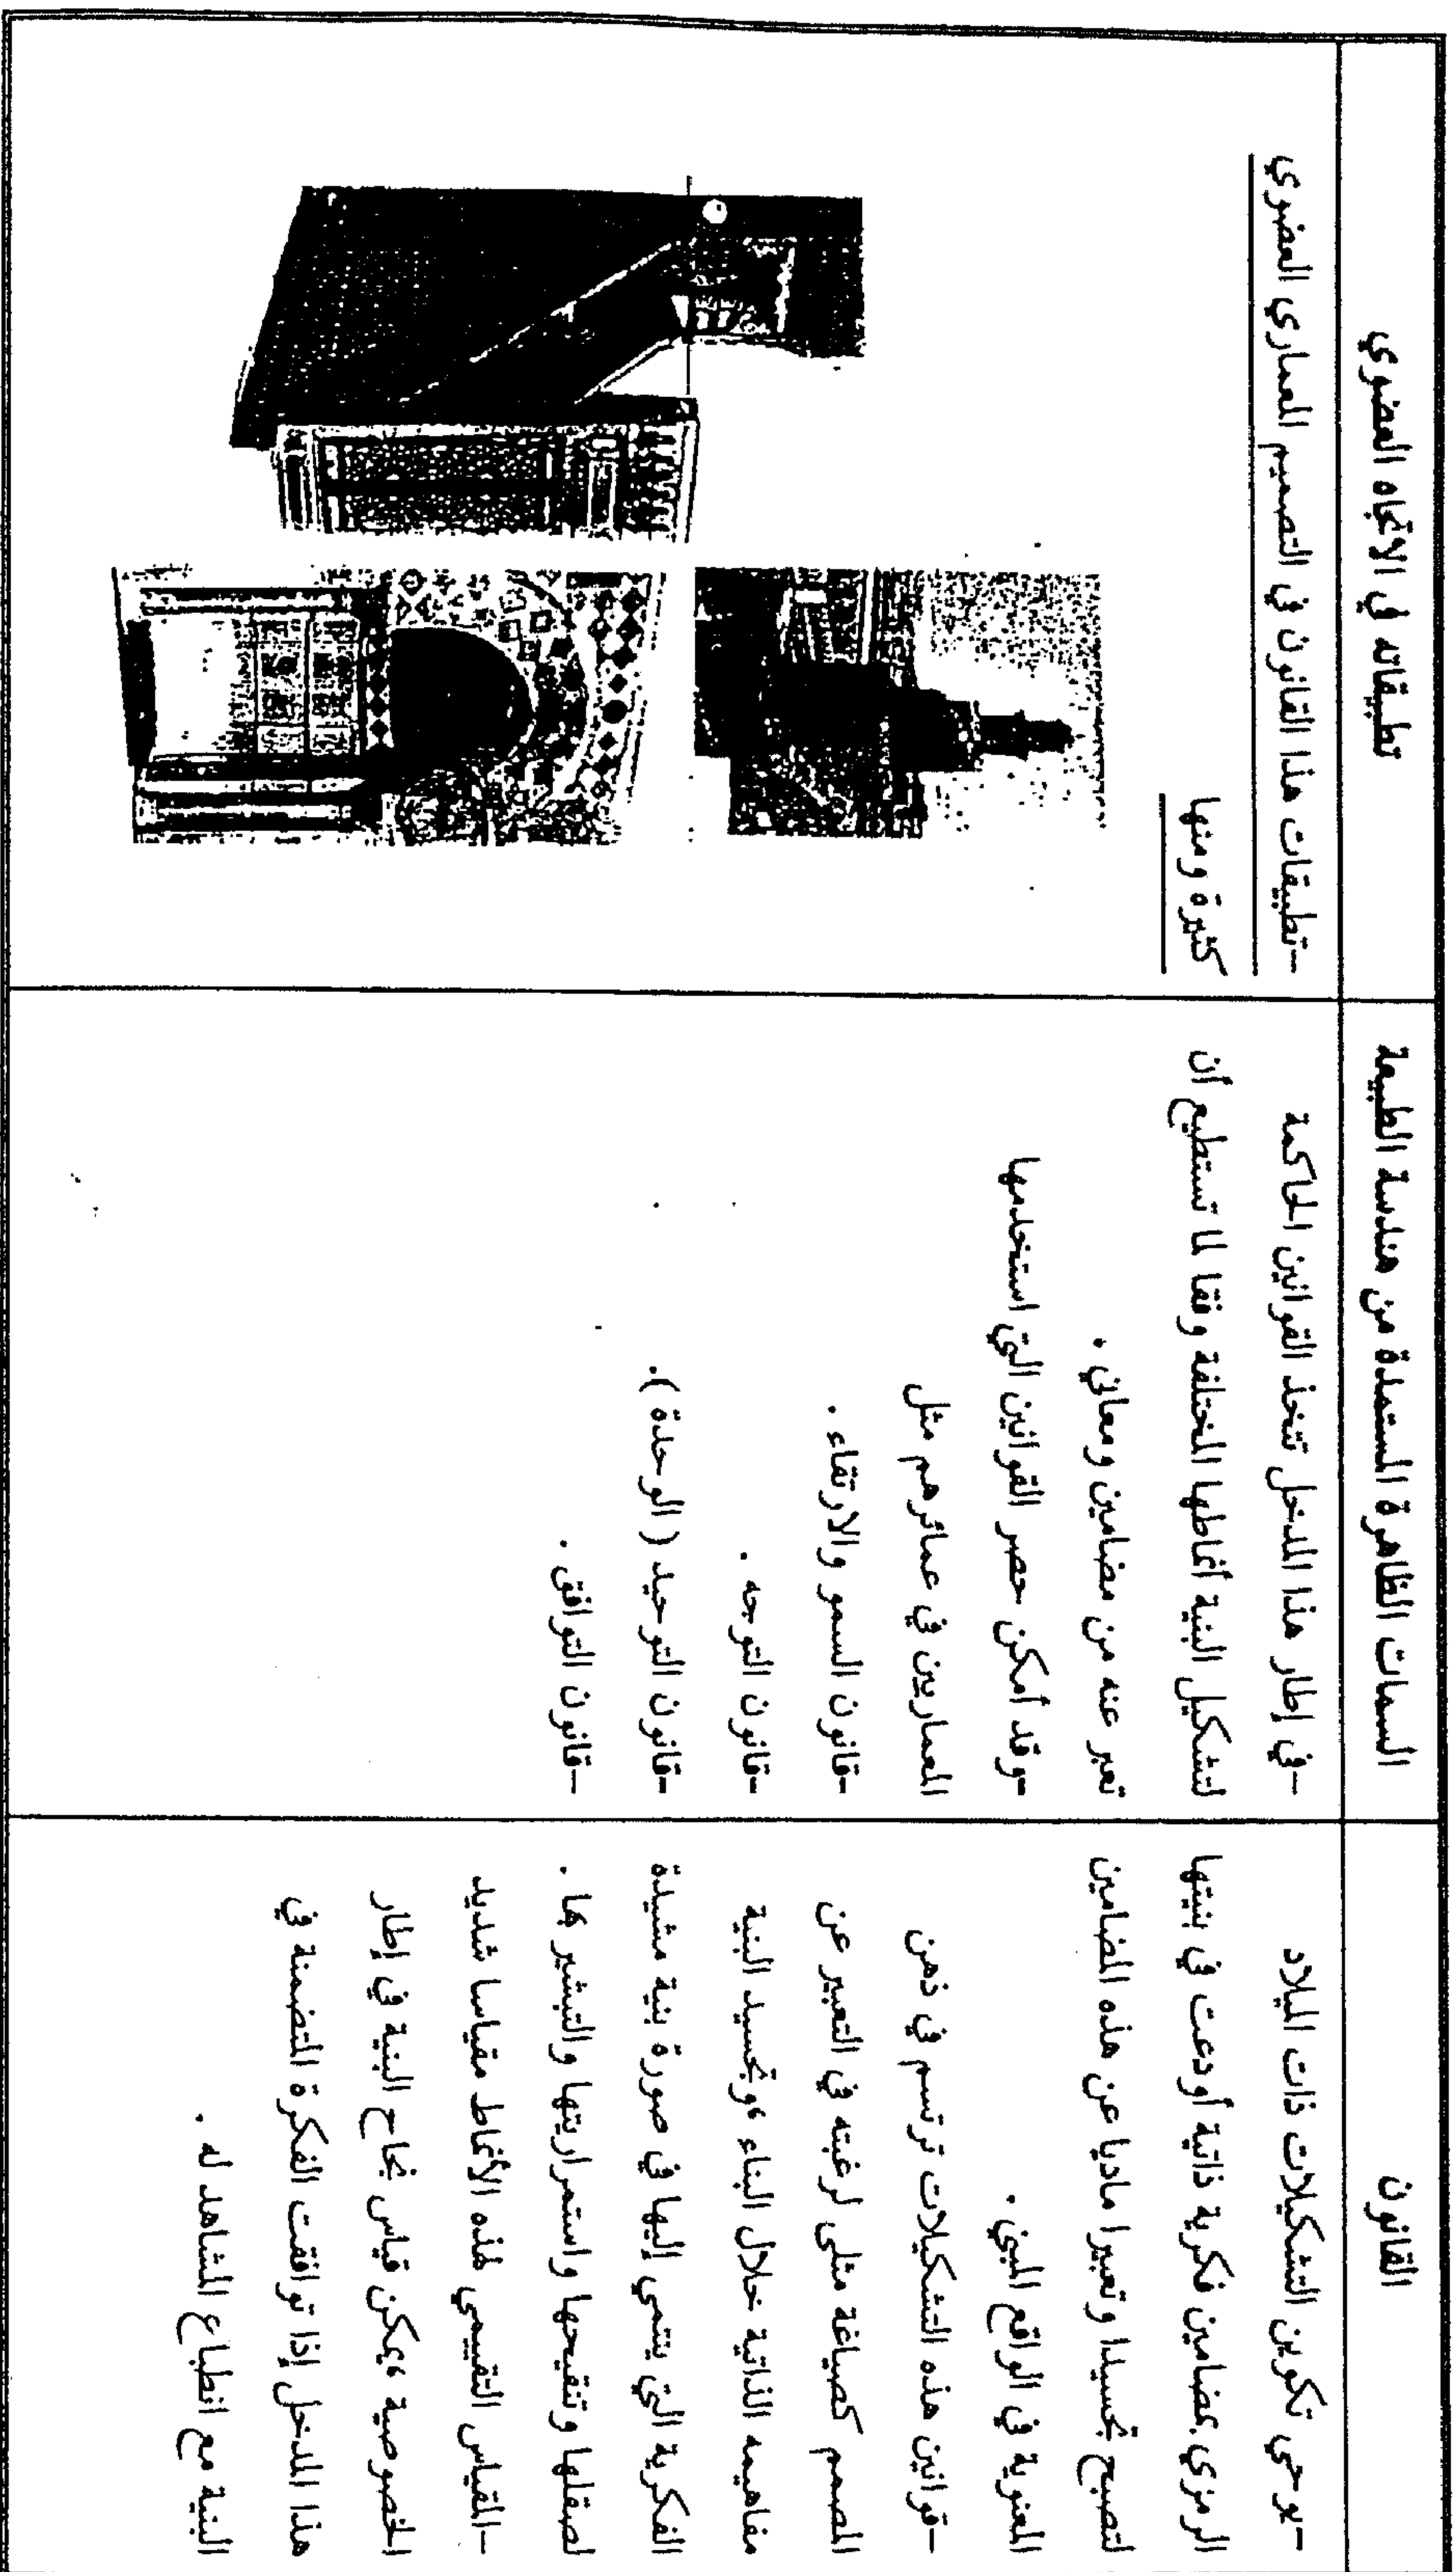 القانون
السمات الظاهرة المستمدة من هندسة الطبيعة
تطبيقاته في الاتجاه العضوي
-يوحي تكوين التشكيلات ذات الميلاد
الرمزي بمضامين فكرية ذاتية أودعت في بنيتها
لتصبح تجسيدا وتعبيرا ماديا عن هذه المضامين
المعنوية في الواقع المبني .
-قوانين هذه التشكيلات ترتسم في ذهن
المصمم كصياغة مثلى لرغبته في التعبير عن
مفاهيمه الذاتية خلال البناء ،وتجسيد البنية
الفكرية التي ينتمي إليها في صورة بنية مشيدة
لصقلها وتنقيحها واستمراريتها والتبشير بها .
-المقياس التقييمي لهذه الأنماط مقياسا شديد
الخصوصية ،يمكن قياس نجاح البنية في إطار
هذا المدخل إذا توافقت الفكرة المتضمنة في
البنية مع انطباع المشاهد له .
-في إطار هذا المدخل تتخذ القوانين الحاكمة
لتشكيل البنية أنماطها المختلفة وفقا لما تستطيع أن
تعبر عنه من مضامين ومعاني .
-وقد أمكن حصر القوانين التي استخدمها
المعماريين في عمائرهم مثل
-قانون السمو والارتقاء .
-قانون التوجه .
-قانون التوحيد ( الوحدة ).
-قانون التوافق .
-تطبيقات هذا القانون في التصميم المعماري العضوي
كثيرة ومنها